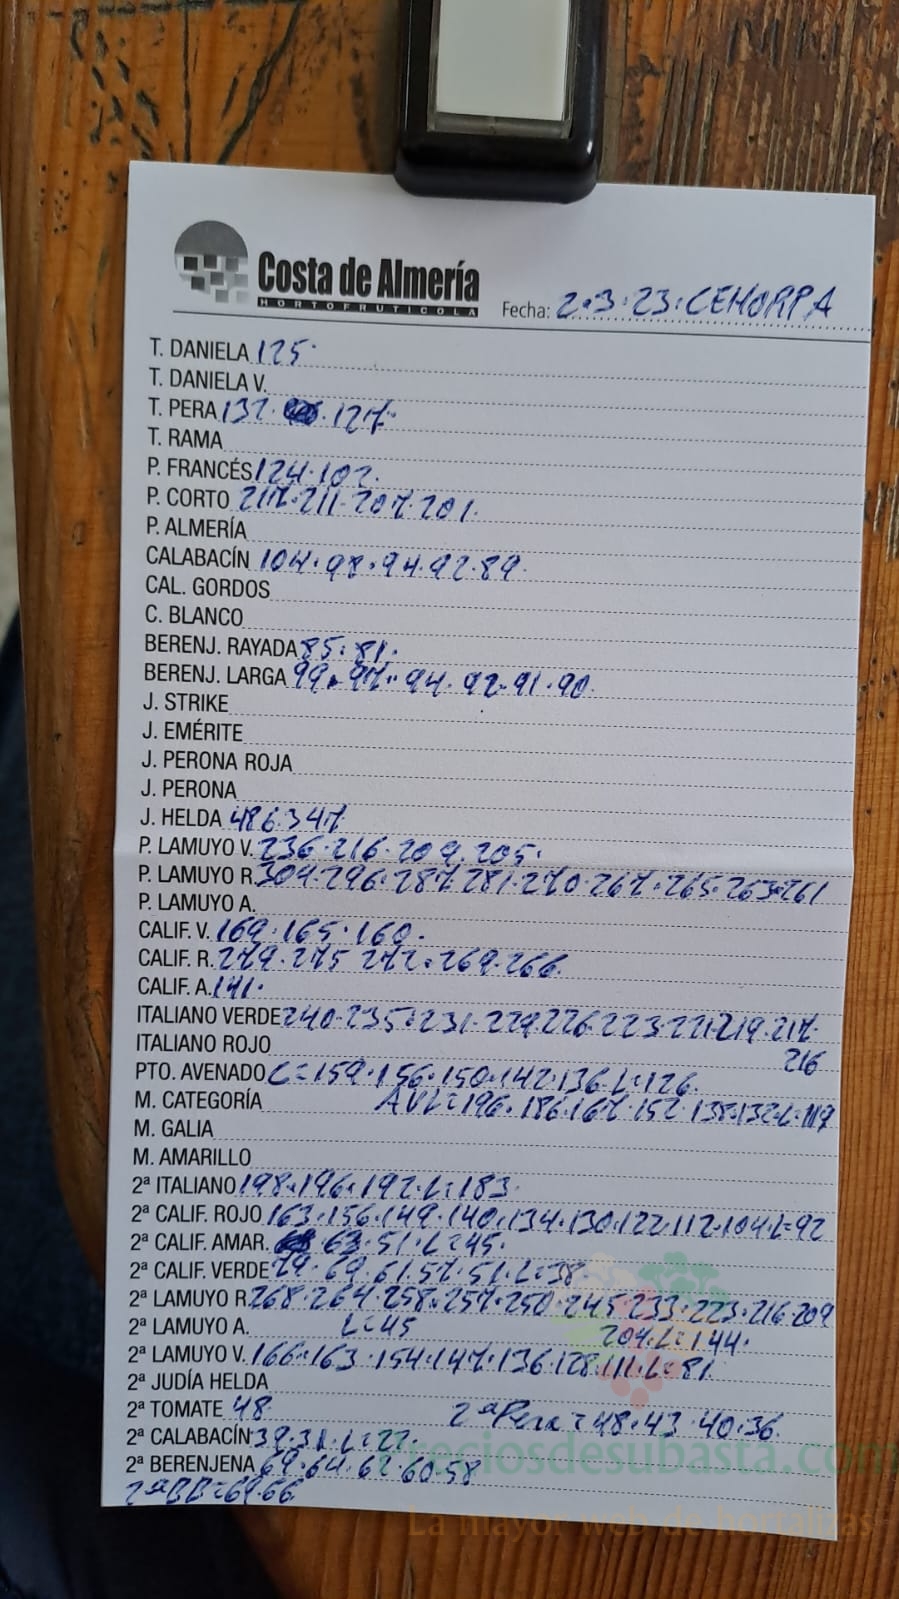 Costa de Almería
HORTOFRUTICOLA
Fecha: 2.3.23.CEHORPA
T. DANIELA 125.
T. DANIELA V.
T. PERA 137. 127.
T. RAMA
P. FRANCÉS 124.102.
P. CORTO 217.211.207.201.
P. ALMERÍA
CALABACÍN 104.98.94.92.89.
CAL. GORDOS
C. BLANCO
BERENJ. RAYADA 85.81.
BERENJ. LARGA 99.97.94.92.91.90.
J. STRIKE
J. EMÉRITE
J. PERONA ROJA
J. PERONA
J. HELDA 486.347
P. LAMUYO V. 236.216.209.205.
P. LAMUYO R. 304.296.287.281.270.267.265.263.261
P. LAMUYO A.
CALIF. V. 169.165.160.
CALIF. R. 279.275 272.269.266.
CALIF. A. 141.
ITALIANO VERDE 240.235.231.229.226.223.221.219.217.
216
ITALIANO ROJO
PTO. AVENADO C=159.156.150.142.136.L=126.
M. CATEGORÍA AVL=196.186.167.152.138.132.L=119
M. GALIA
M. AMARILLO
2ª ITALIANO 198.196.192.L=183.
2ª CALIF. ROJO 163.156.149.140.134.130.122.112.104.L=92
2ª CALIF. AMAR. 63.51.L=45.
2ª CALIF. VERDE 79.69.61.57.51.L=38
2ª LAMUYO R. 268.264.258.257.250.245.233.223.216.209
2ª LAMUYO A. L=45 204.L=144.
2ª LAMUYO V. 166.163.154.147.136.128.111.L=81.
2ª JUDÍA HELDA
2ª TOMATE 48. 2ª Pera=48.43.40.36.
2ª CALABACÍN 39.31.L=27.
2ª BERENJENA 69.64.62.60.58
2ª BB=69.66
reciosdesubasta.com
La mayor web de hortalizas